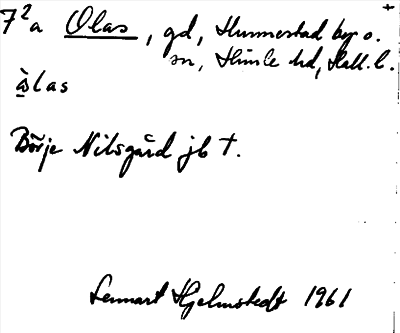 7²a Olas, gd, Hunnestad by o.
sn, Himle hd, Hall. l.
òlas
Börje Nilsgård jb †.
Lennart Hjelmstedt 1961